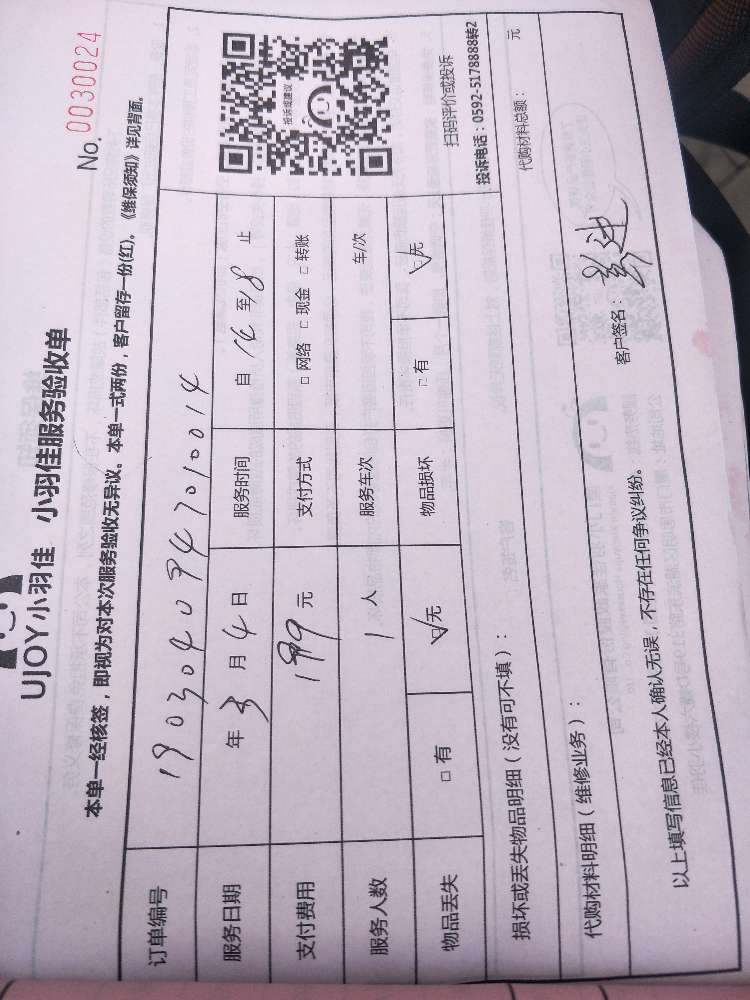 UJOY小羽佳 小羽佳服务验收单
No. 0030024
本单一经核签，即视为对本次服务验收无异议。本单一式两份，客户留存一份(红)。《维保须知》详见背面。
订单编号 1903040947010014
服务日期 年3月4日 服务时间 自14至18止
支付费用 199元 支付方式 □网络 □现金 □转账
服务人数 1人 服务车次 车/次
物品丢失 □有 ☑无 物品损坏 □有 ☑无
投诉或建议
扫码评价或投诉
投诉电话：0592-5178888转2
损坏或丢失物品明细（没有可不填）：
代购材料明细（维修业务）： 代购材料总额： 元
以上填写信息已经本人确认无误，不存在任何争议纠纷。 客户签名：